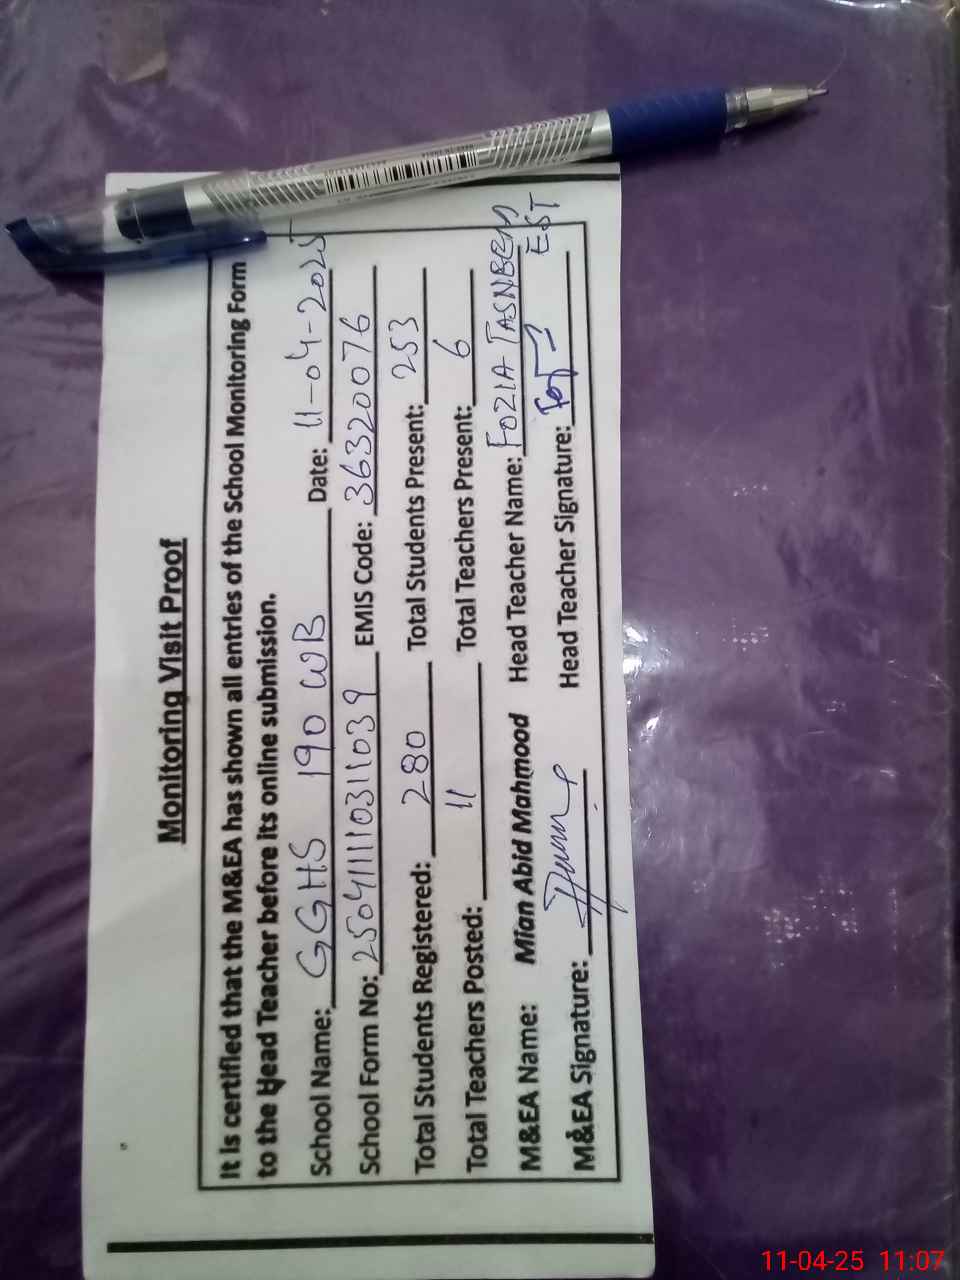 Monitoring Visit Proof
It is certified that the M&EA has shown all entries of the School Monitoring Form
to the Head Teacher before its online submission.
School Name: GGHS 190 WB Date: 11-04-2025
School Form No: 2504111103111039 EMIS Code: 36320076
Total Students Registered: 280 Total Students Present: 253
Total Teachers Posted: 11 Total Teachers Present: 6
M&EA Name: Mian Abid Mahmood Head Teacher Name: FOZIA TASNEEM
EST
M&EA Signature: Head Teacher Signature:
11-04-25 11:07